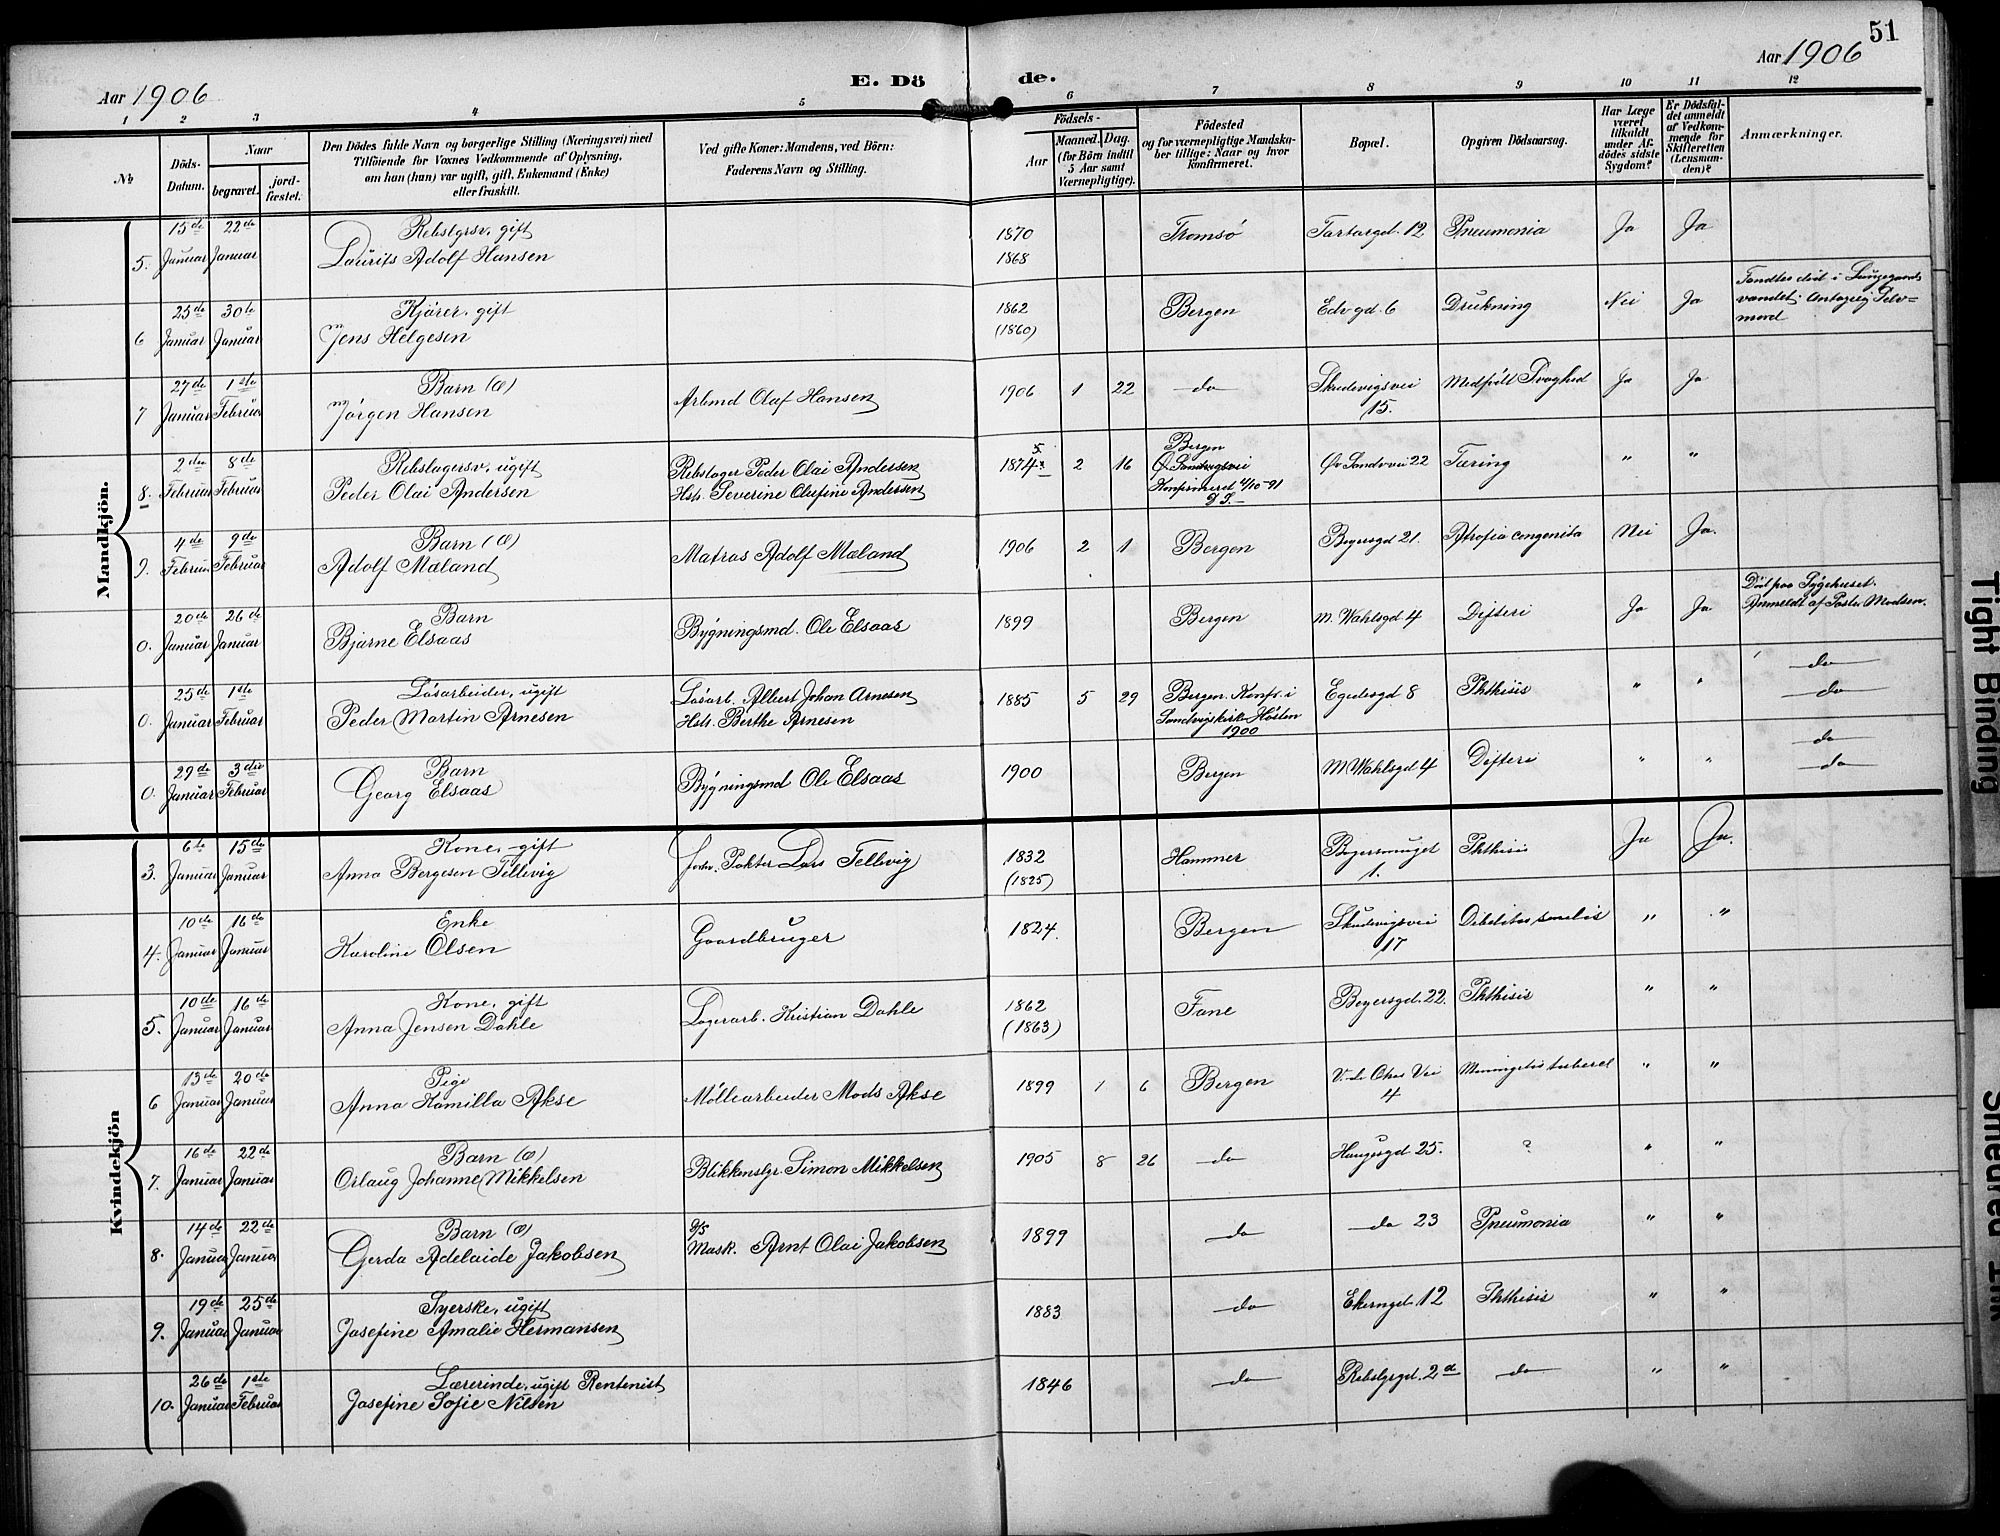 51
Aar 1906
E. Dö de.
Aar 1906
1 2 3 4 5 6 7 8 9 10 11 12
No
Döds-Datum.
Naar
begravet.
jord-fæstet.
Den Dödes fulde Navn og borgerlige Stilling (Næringsvei) med
Tilföiende for Voxnes Vedkommende af Oplysning,
om han (hun) var ugift, gift, Enkemand (Enke)
eller fraskilt.
Ved gifte Koner: Mandens, ved Börn:
Faderens Navn og Stilling.
Födsels-
Aar
Maaned. Dag.
(for Börn indtil
5 Aar samt
Værnepligtige).
Födested
og for værnepligtige Mandska-
ber tillige: Naar og hvor
konfirmeret.
Bopæl.
Opgiven Dödsaarsag.
Har Læge
været
tilkaldt
under Af-
dödes sidste
Sygdom?
Er Dödsfal-
det anmeldt
af Vedkom-
mende for
Skifteretten
(Lensman-
den)?
Anmærkninger.
Mandkjön.
15de 22de Rebslgrsv, gift 1870 Tromsö Tartargd. 12 Pneumonia Ja Ja
5. Januar Januar Laurits Adolf Hansen 1868
25de 30te Kjörer, gift 1862 Bergen Edv gd. 6 Drukning Nei Ja Fandtes död i Lungegaards
6 Januar Januar Jens Helgesen (1860) vandet. Antagelig Selv=
mord
27de 1ste Barn (æ) 1906 1 22 do Skudevigsvei Medfödt Svaghed Ja Ja
7 Januar Februar Jörgen Hansen Olaf Hansen 15.
2den 8de Rebslagersv, ugift Rebslager Peder Olai Andersen 1874 2 16 Bergen Öv Sandvvei 22 Tæring " "
8. Februar Februar Peder Olai Andersen Hst. Severine Olufine Andersen Ö. Sandvigsvei
Konfirmeret 4/10-91
4de 9de Barn (æ) 1906 2 1 Bergen Beyersgd 21. Atrofia congenita Nei Ja.
9. Februar Februar Adolf Mæland Matros Adolf Mæland
20de 26de Barn 1899 Bergen M. Wahlsgd 4 Difteri Ja Ja Död paa Sygehuset.
0. Januar Januar Bjarne Elsaas Bygningsmd. Ole Elsaas Anmeldt af Pastor Madsen.
25de 1ste Lösarbeider, ugift Lösarb. Albert Johan Arnesen 1885 5 29 Bergen. Konfr. i Egedesgd 8 Phthisis " " do
0. Januar Februar Peder Martin Arnesen Hst. Berthe Arnesen Sandvigskirke Hösten do
1900
29de 3die Barn 1900 Bergen M Wahlsgd 4 Difteri " " do
0. Januar Februar Georg Elsaas Bygningsmd Ole Elsaas do
Kvindekjön
6te 15de Kone, gift 1832 Hammer Beyersmuget Phthisis Ja Ja.
3. Januar Januar Anna Bergesen Tellevig Lars Tellevig (1825) 1.
10de 16de Enke 1824. Bergen Skudevigsvei Debilitas senilis " "
4. Januar Januar Karoline Olsen Gaardbruger 17
10de 16de Kone, gift 1862 Fane Beyersgd. 22. Phthisis " "
5. Januar Januar Anna Jensen Dahle Lagerarb. Kristian Dahle (1863)
13de 20de Pige 1899 1 6 Bergen Vei Meningitis tubercl " "
6 Januar Januar Anna Kamilla Akse Möllearbeider Mads Akse 4
16de 22de Barn (æ) 1905 8 26 do Haugesgd 25. ? " "
7. Januar Januar Orlaug Johanne Mikkelsen Blikkenslgr. Simon Mikkelsen
14de 22de Barn (æ) 1899 do do 23 Pneumonia " "
8. Januar Januar Gerda Adelaide Jakobsen Mask. Arnt Olai Jakobsen
19de 25de Syerske, ugift 1883 do Ekerngd. 12 Phthisis " "
9. Januar Januar Josefine Amalie Hermansen
26de 1ste Lærerinde, ugift Rentenist 1846 do Rebslgrgd. 2d do " "
10. Januar Februar Josefine Sofie Nilsen
Tight Binding
Smeared Ink